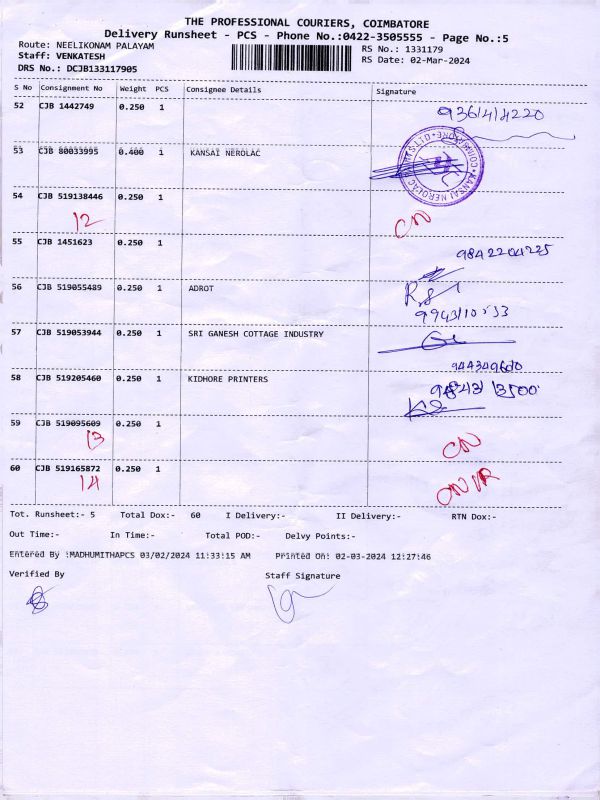 THE PROFESSIONAL COURIERS, COIMBATORE
Delivery Runsheet - PCS - Phone No.:0422-3505555 - Page No.:5
Route: NEELIKONAM PALAYAM
RS No.: 1331179
Staff: VENKATESH
RS Date: 02-Mar-2024
DRS No.: DCJB133117905
S No Consignment No Weight PCS Consignee Details Signature
52 CJB 1442749 0.250 1
9361414220
53 CJB 80033995 0.400 1 KANSAI NEROLAC
COIMBATORE KANSAI NEROLAC
54 CJB 519138446 0.250 1
12 CN
55 CJB 1451623 0.250 1
9842204225
56 CJB 519055489 0.250 1 ADROT
R.S
57 CJB 519053944 0.250 1 SRI GANESH COTTAGE INDUSTRY
58 CJB 519205460 0.250 1 KIDHORE PRINTERS
59 CJB 519095609 0.250 1
13 CN
60 CJB 519165872 0.250 1
14 CN
Tot. Runsheet:- 5 Total Dox:- 60 I Delivery:- II Delivery:- RTN Dox:-
Out Time:- In Time:- Total POD:- Delvy Points:-
Entered By :MADHUMITHAPCS 03/02/2024 11:33:15 AM Printed On: 02-03-2024 12:27:46
Verified By Staff Signature